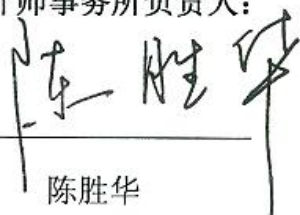 计师事务所负责人：
陈胜华
陈胜华